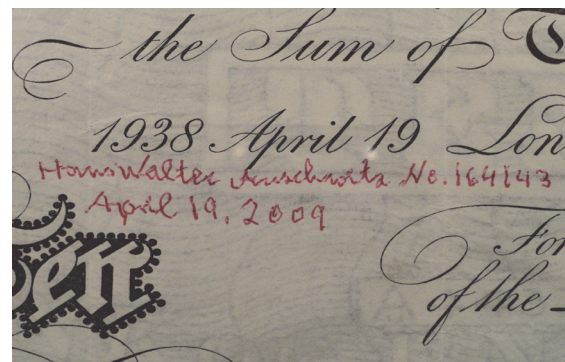 the Sum of T
1938 April 19 Lon
Hans Walter Auschwitz No. 164143
April 19, 2009
Ten
For
of the